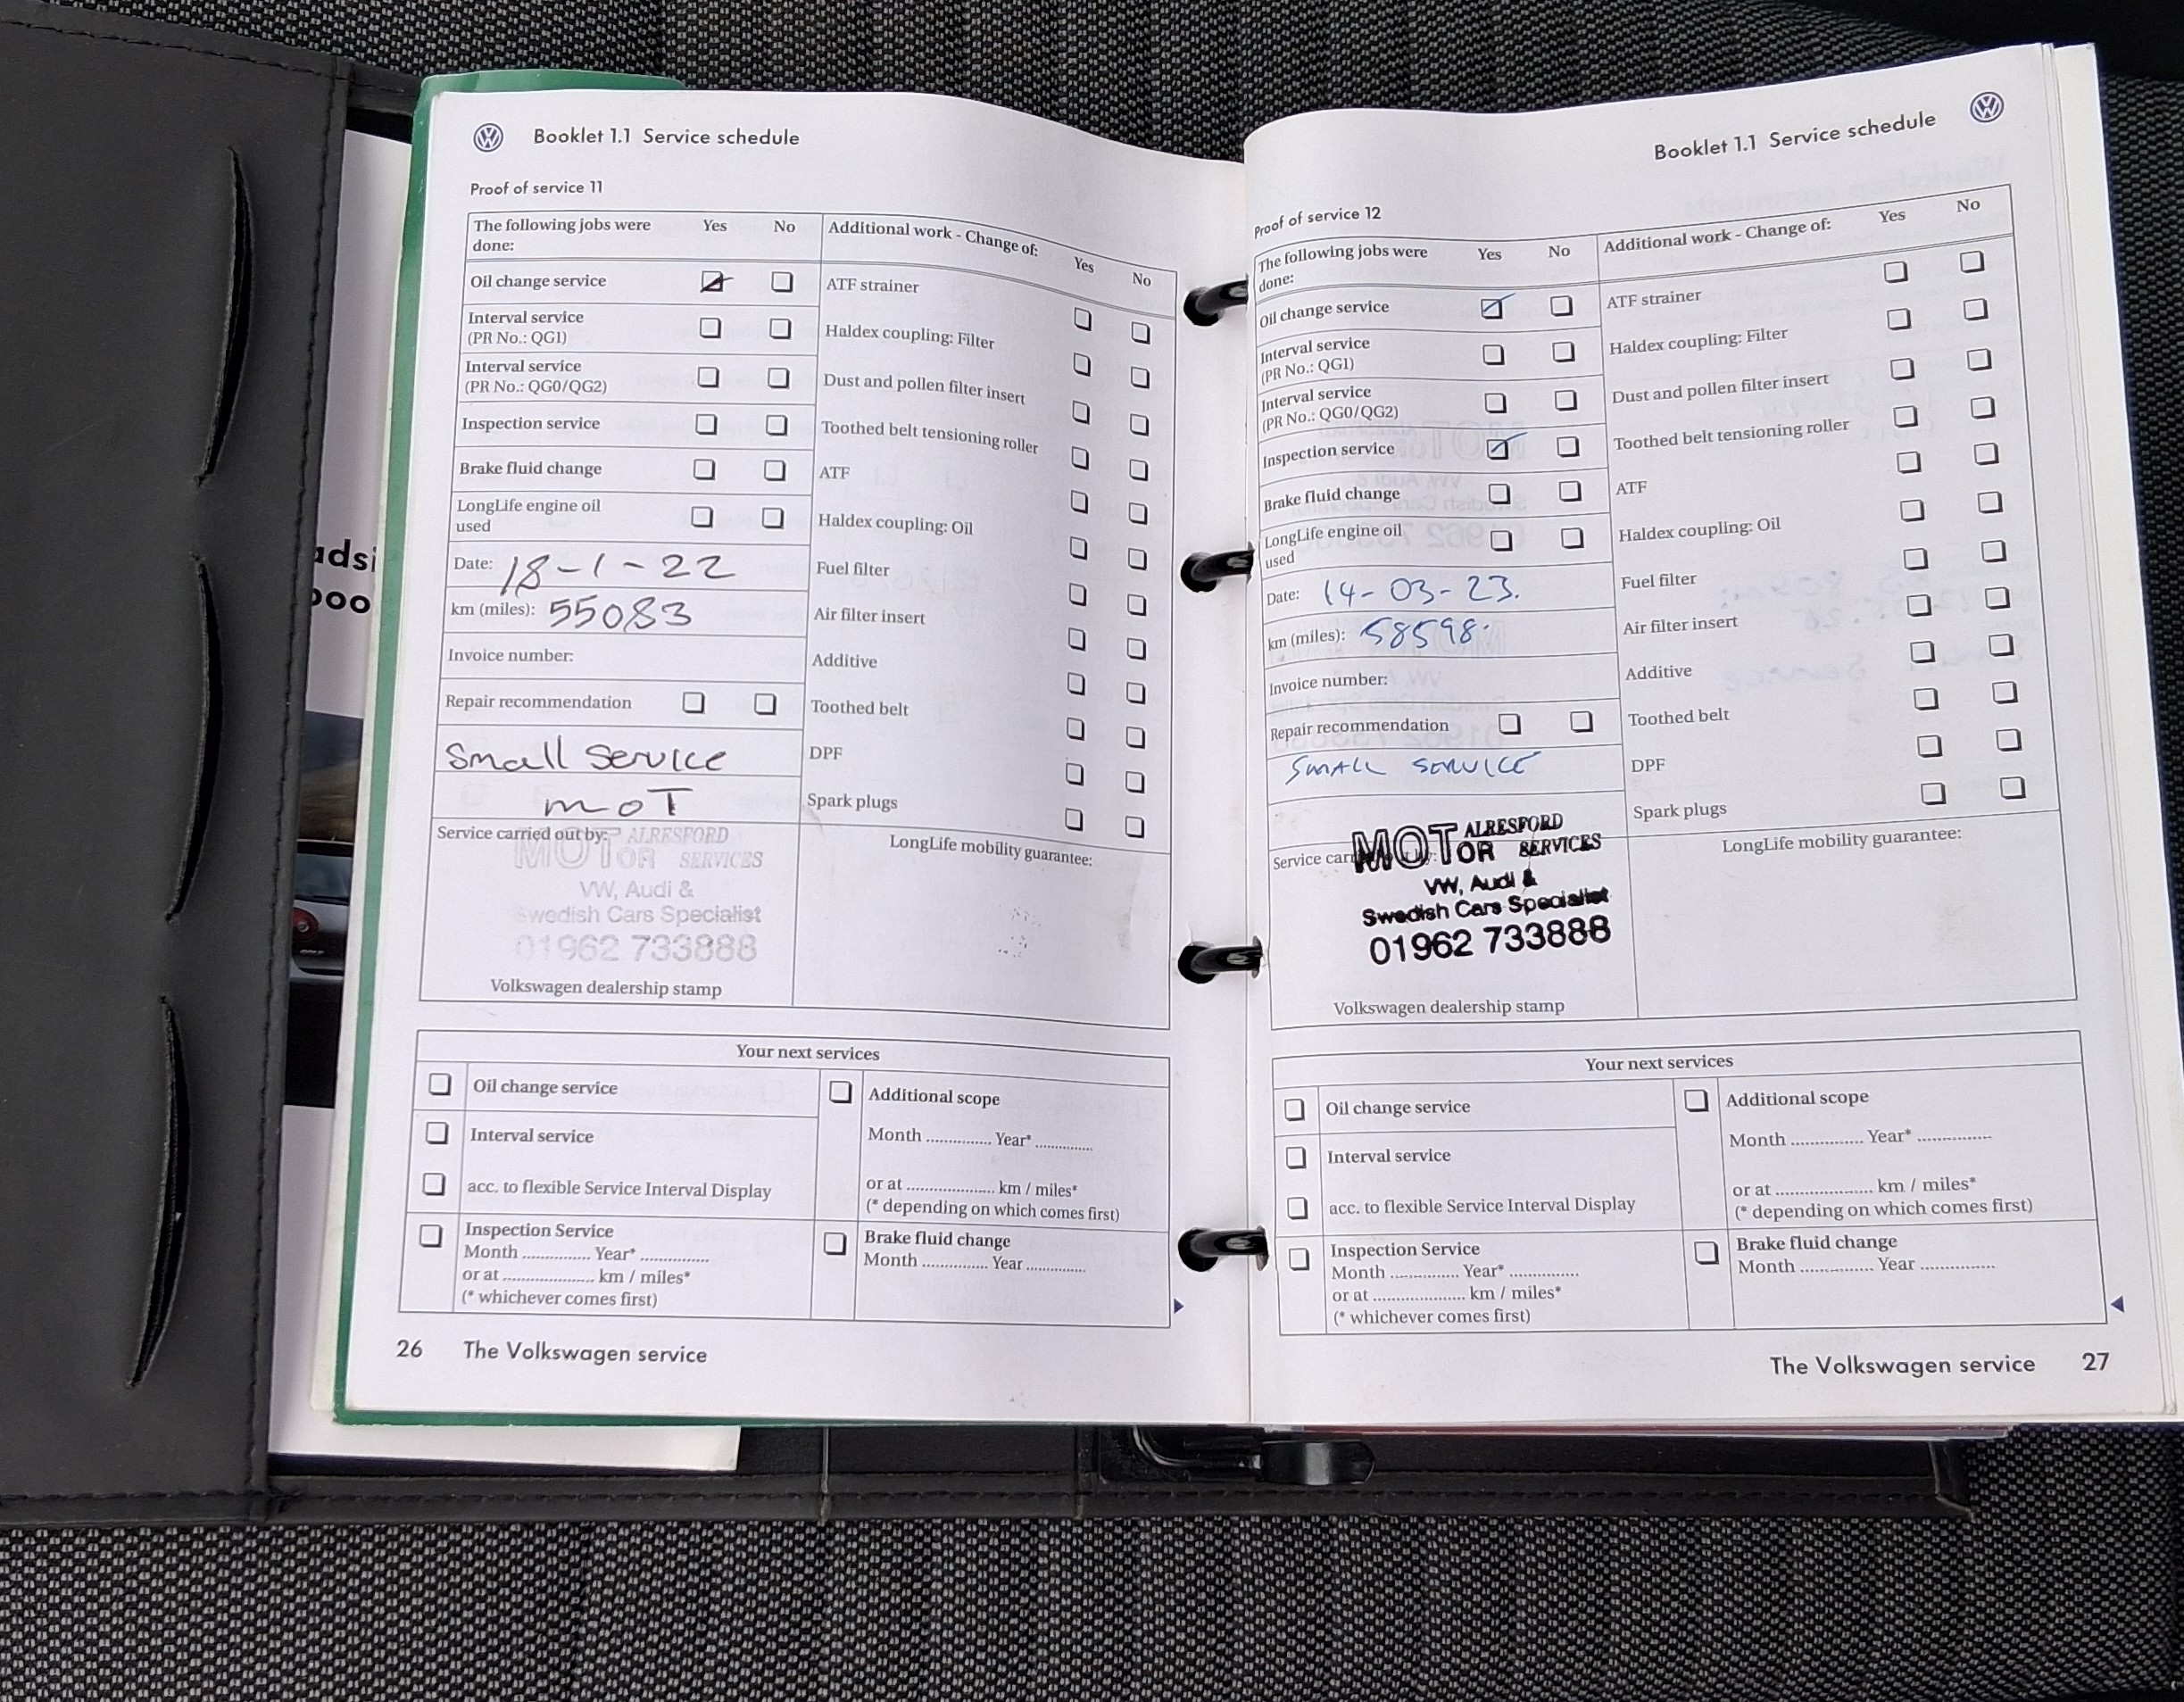 adsi
boo
Booklet 1.1 Service schedule
Proof of service 11
The following jobs were done: Yes No
Additional work - Change of: Yes No
Oil change service
Interval service
(PR No.: QG1)
Interval service
(PR No.: QG0/QG2)
Inspection service
Brake fluid change
LongLife engine oil
used
Date: 18-1-22
km (miles): 55083
Invoice number:
Repair recommendation
Small Service
MOT
ATF strainer
Haldex coupling: Filter
Dust and pollen filter insert
Toothed belt tensioning roller
ATF
Haldex coupling: Oil
Fuel filter
Air filter insert
Additive
Toothed belt
DPF
Spark plugs
Service carried out by:
MOTOR ALRESFORD
SERVICES
VW, Audi &
Swedish Cars Specialist
01962 733888
Volkswagen dealership stamp
LongLife mobility guarantee:
Your next services
Oil change service
Interval service
acc. to flexible Service Interval Display
Inspection Service
Month .............. Year* ..............
or at ................... km / miles*
(* whichever comes first)
Additional scope
Month .............. Year* ..............
or at ................... km / miles*
(* depending on which comes first)
Brake fluid change
Month .............. Year ..............
26 The Volkswagen service
Booklet 1.1 Service schedule
Proof of service 12
The following jobs were done: Yes No
Additional work - Change of: Yes No
Oil change service
Interval service
(PR No.: QG1)
Interval service
(PR No.: QG0/QG2)
Inspection service
Brake fluid change
LongLife engine oil
used
Date: 14-03-23.
km (miles): 58598.
Invoice number:
Repair recommendation
SMALL SERVICE
ATF strainer
Haldex coupling: Filter
Dust and pollen filter insert
Toothed belt tensioning roller
ATF
Haldex coupling: Oil
Fuel filter
Air filter insert
Additive
Toothed belt
DPF
Spark plugs
Service carr
MOTOR ALRESFORD
SERVICES
VW, Audi &
Swedish Cars Specialist
01962 733888
Volkswagen dealership stamp
LongLife mobility guarantee:
Your next services
Oil change service
Interval service
acc. to flexible Service Interval Display
Inspection Service
Month .............. Year* ..............
or at ................... km / miles*
(* whichever comes first)
Additional scope
Month .............. Year* ..............
or at ................... km / miles*
(* depending on which comes first)
Brake fluid change
Month .............. Year ..............
The Volkswagen service 27